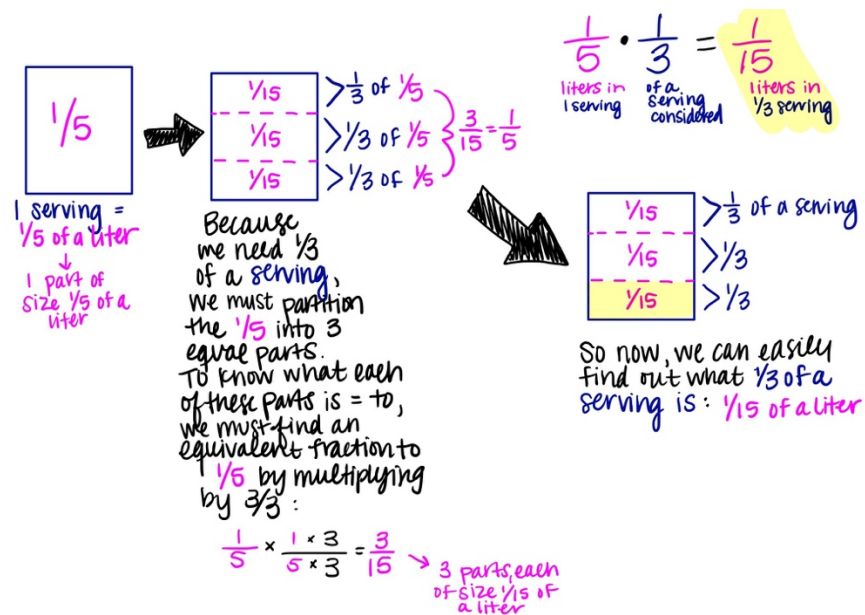 1/5 · 1/3 = 1/15
liters in 1 serving
of a serving considered
liters in 1/3 serving
1/5
1 serving =
1/5 of a liter
↓
1 part of
size 1/5 of a
liter
1/15 > 1/3 of 1/5
1/15 > 1/3 of 1/5
1/15 > 1/3 of 1/5
3/15 = 1/5
Because
we need 1/3
of a serving,
we must partition
the 1/5 into 3
equal parts.
To know what each
of these parts is = to,
we must find an
equivalent fraction to
1/5 by multiplying
by 3/3:
1/5 × 1 × 3/5 × 3 = 3/15
→ 3 parts, each
of size 1/15 of
a liter
1/15 > 1/3 of a serving
1/15 > 1/3
1/15 > 1/3
So now, we can easily
find out what 1/3 of a
serving is: 1/15 of a liter